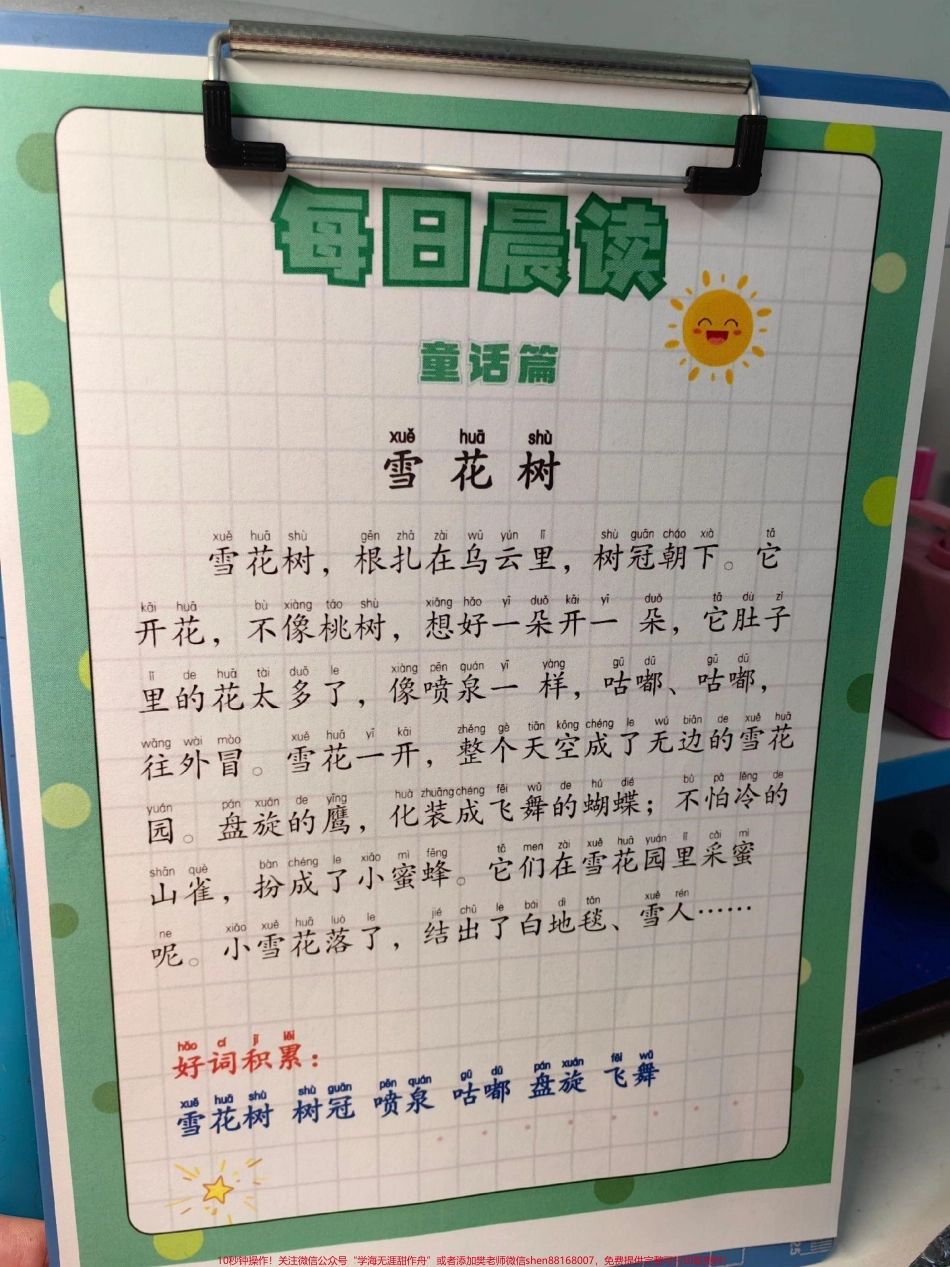 每日晨读
童话篇
xuě huā shù
雪花树
xuě huā shù gēn zhā zài wū yún lǐ shù guān cháo xià tā
雪花树，根扎在乌云里，树冠朝下。它
kāi huā bù xiàng táo shù xiǎng hǎo yī duǒ kāi yī duǒ tā dù zi
开花，不像桃树，想好一朵开一 朵，它肚子
lǐ de huā tài duō le xiàng pēn quán yī yàng gū dū gū dū
里的花太多了，像喷泉一 样，咕嘟、咕嘟，
wǎng wài mào xuě huā yī kāi zhěng gè tiān kōng chéng le wú biān de xuě huā
往外冒。雪花一开，整个天空成了无边的雪花
yuán pán xuán de yīng huà zhuāng chéng fēi wǔ de hú dié bù pà lěng de
园。盘旋的鹰，化装成飞舞的蝴蝶；不怕冷的
shān què bàn chéng le xiǎo mì fēng tā men zài xuě huā yuán lǐ cǎi mì
山雀，扮成了小蜜蜂。它们在雪花园里采蜜
ne xiǎo xuě huā luò le jié chū le bái dì tǎn xuě rén
呢。小雪花落了，结出了白地毯、雪人……
hǎo cí jī lěi
好词积累：
xuě huā shù shù guān pēn quán gū dū pán xuán fēi wǔ
雪花树 树冠 喷泉 咕嘟 盘旋 飞舞
10秒钟操作！关注微信公众号“学海无涯甜作舟”或者添加樊老师微信shen88168007，免费提供完整